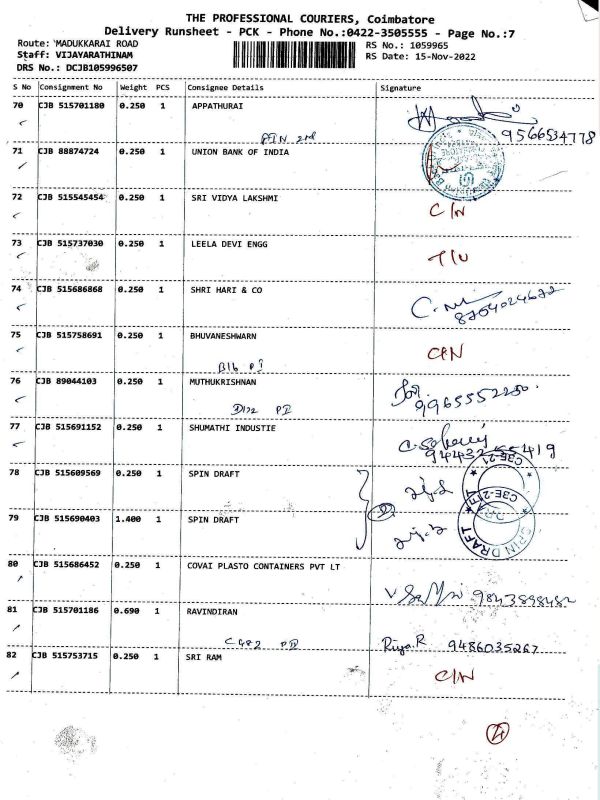 THE PROFESSIONAL COURIERS, Coimbatore
Delivery Runsheet - PCK - Phone No.:0422-3505555 - Page No.:7
Route: MADUKKARAI ROAD
RS No.: 1059965
Staff: VIJAYARATHINAM
RS Date: 15-Nov-2022
DRS No.: DCJB105996507
S No Consignment No Weight PCS Consignee Details Signature
70 CJB 515701180 0.250 1 APPATHURAI
9566534778
71 CJB 88874724 0.250 1 UNION BANK OF INDIA
72 CJB 515545454 0.250 1 SRI VIDYA LAKSHMI
C/N
73 CJB 515737030 0.250 1 LEELA DEVI ENGG
T/U
74 CJB 515686868 0.250 1 SHRI HARI & CO
75 CJB 515758691 0.250 1 BHUVANESHWARN
76 CJB 89044103 0.250 1 MUTHUKRISHNAN
77 CJB 515691152 0.250 1 SHUMATHI INDUSTIE
78 CJB 515609569 0.250 1 SPIN DRAFT
79 CJB 515690403 1.400 1 SPIN DRAFT
SPIN DRAFT
80 CJB 515686452 0.250 1 COVAI PLASTO CONTAINERS PVT LT
81 CJB 515701186 0.690 1 RAVINDIRAN
Riya.R 9486035267
82 CJB 515753715 0.250 1 SRI RAM
C/N